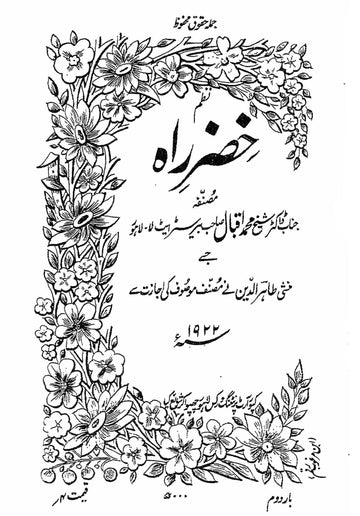 جملہ حقوق محفوظ
نظم
خضر راہ
مصنفہ
جناب ڈاکٹر شیخ محمد اقبال صاحب بیرسٹر ایٹ لا۔ لاہور
جسے
منشی طاہر الدین نے مصنف موصوف کی اجازت سے
۱۹۲۲ء
کپور آرٹ پرنٹنگ ورکس لاہور میں چھپوا کر شائع کیا
بار دوم
۵۰۰۰
قیمت ۴؍